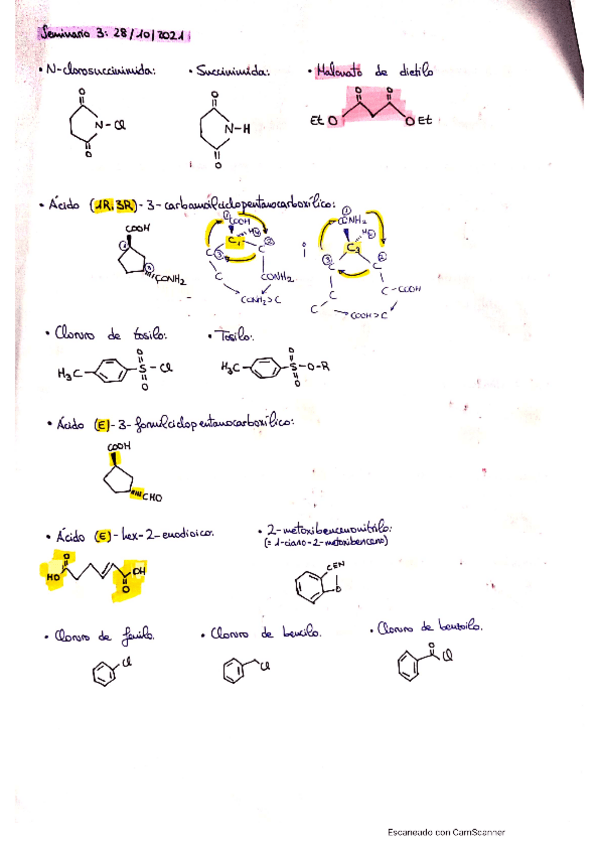 Seminario 3: 28/10/2021
• N-clorosuccinimida: • Succinimida: • Malonato de dietilo
O O O O
N-Cl N-H EtO OEt
O O
• Ácido (1R, 3R)-3-carbamoilciclopentanocarboxílico:
COOH ① COOH H④ ① CONH₂ H④
C₁ ② C₃
③ ③ ②
CONH₂ C CONH₂ C C-COOH
CONH₂>C C COOH>C
• Cloruro de tosilo: • Tosilo:
O O
H₃C S-Cl H₃C S-O-R
O O
• Ácido (E)-3-formilciclopentanocarboxílico:
COOH
CHO
• Ácido (E)-hex-2-enodioico. • 2-metoxibencenonitrilo:
(= 1-ciano-2-metoxibenceno)
O OH CEN
HO O O
• Cloruro de fenilo. • Cloruro de bencilo. • Cloruro de benzoilo.
Cl Cl O Cl
Escaneado con CamScanner